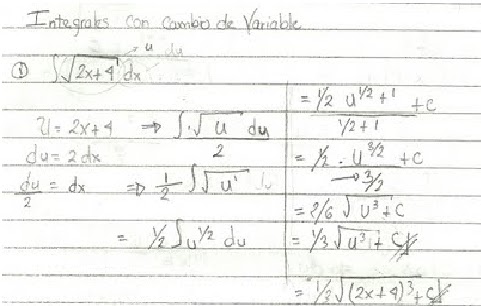 Integrales con Cambio de Variable
u du
① ∫√(2x+4) dx
U = 2x+4 ⇒ ∫√u du/2
du = 2 dx
du/2 = dx ⇒ 1/2 ∫√u du
= 1/2 ∫u^1/2 du
= 1/2 u^(1/2+1) / (1/2+1) + c
= 1/2 · u^3/2 / (3/2) + c
= 2/6 √u³ + c
= 1/3 √u³ + c
= 1/3 √(2x+4)³ + c